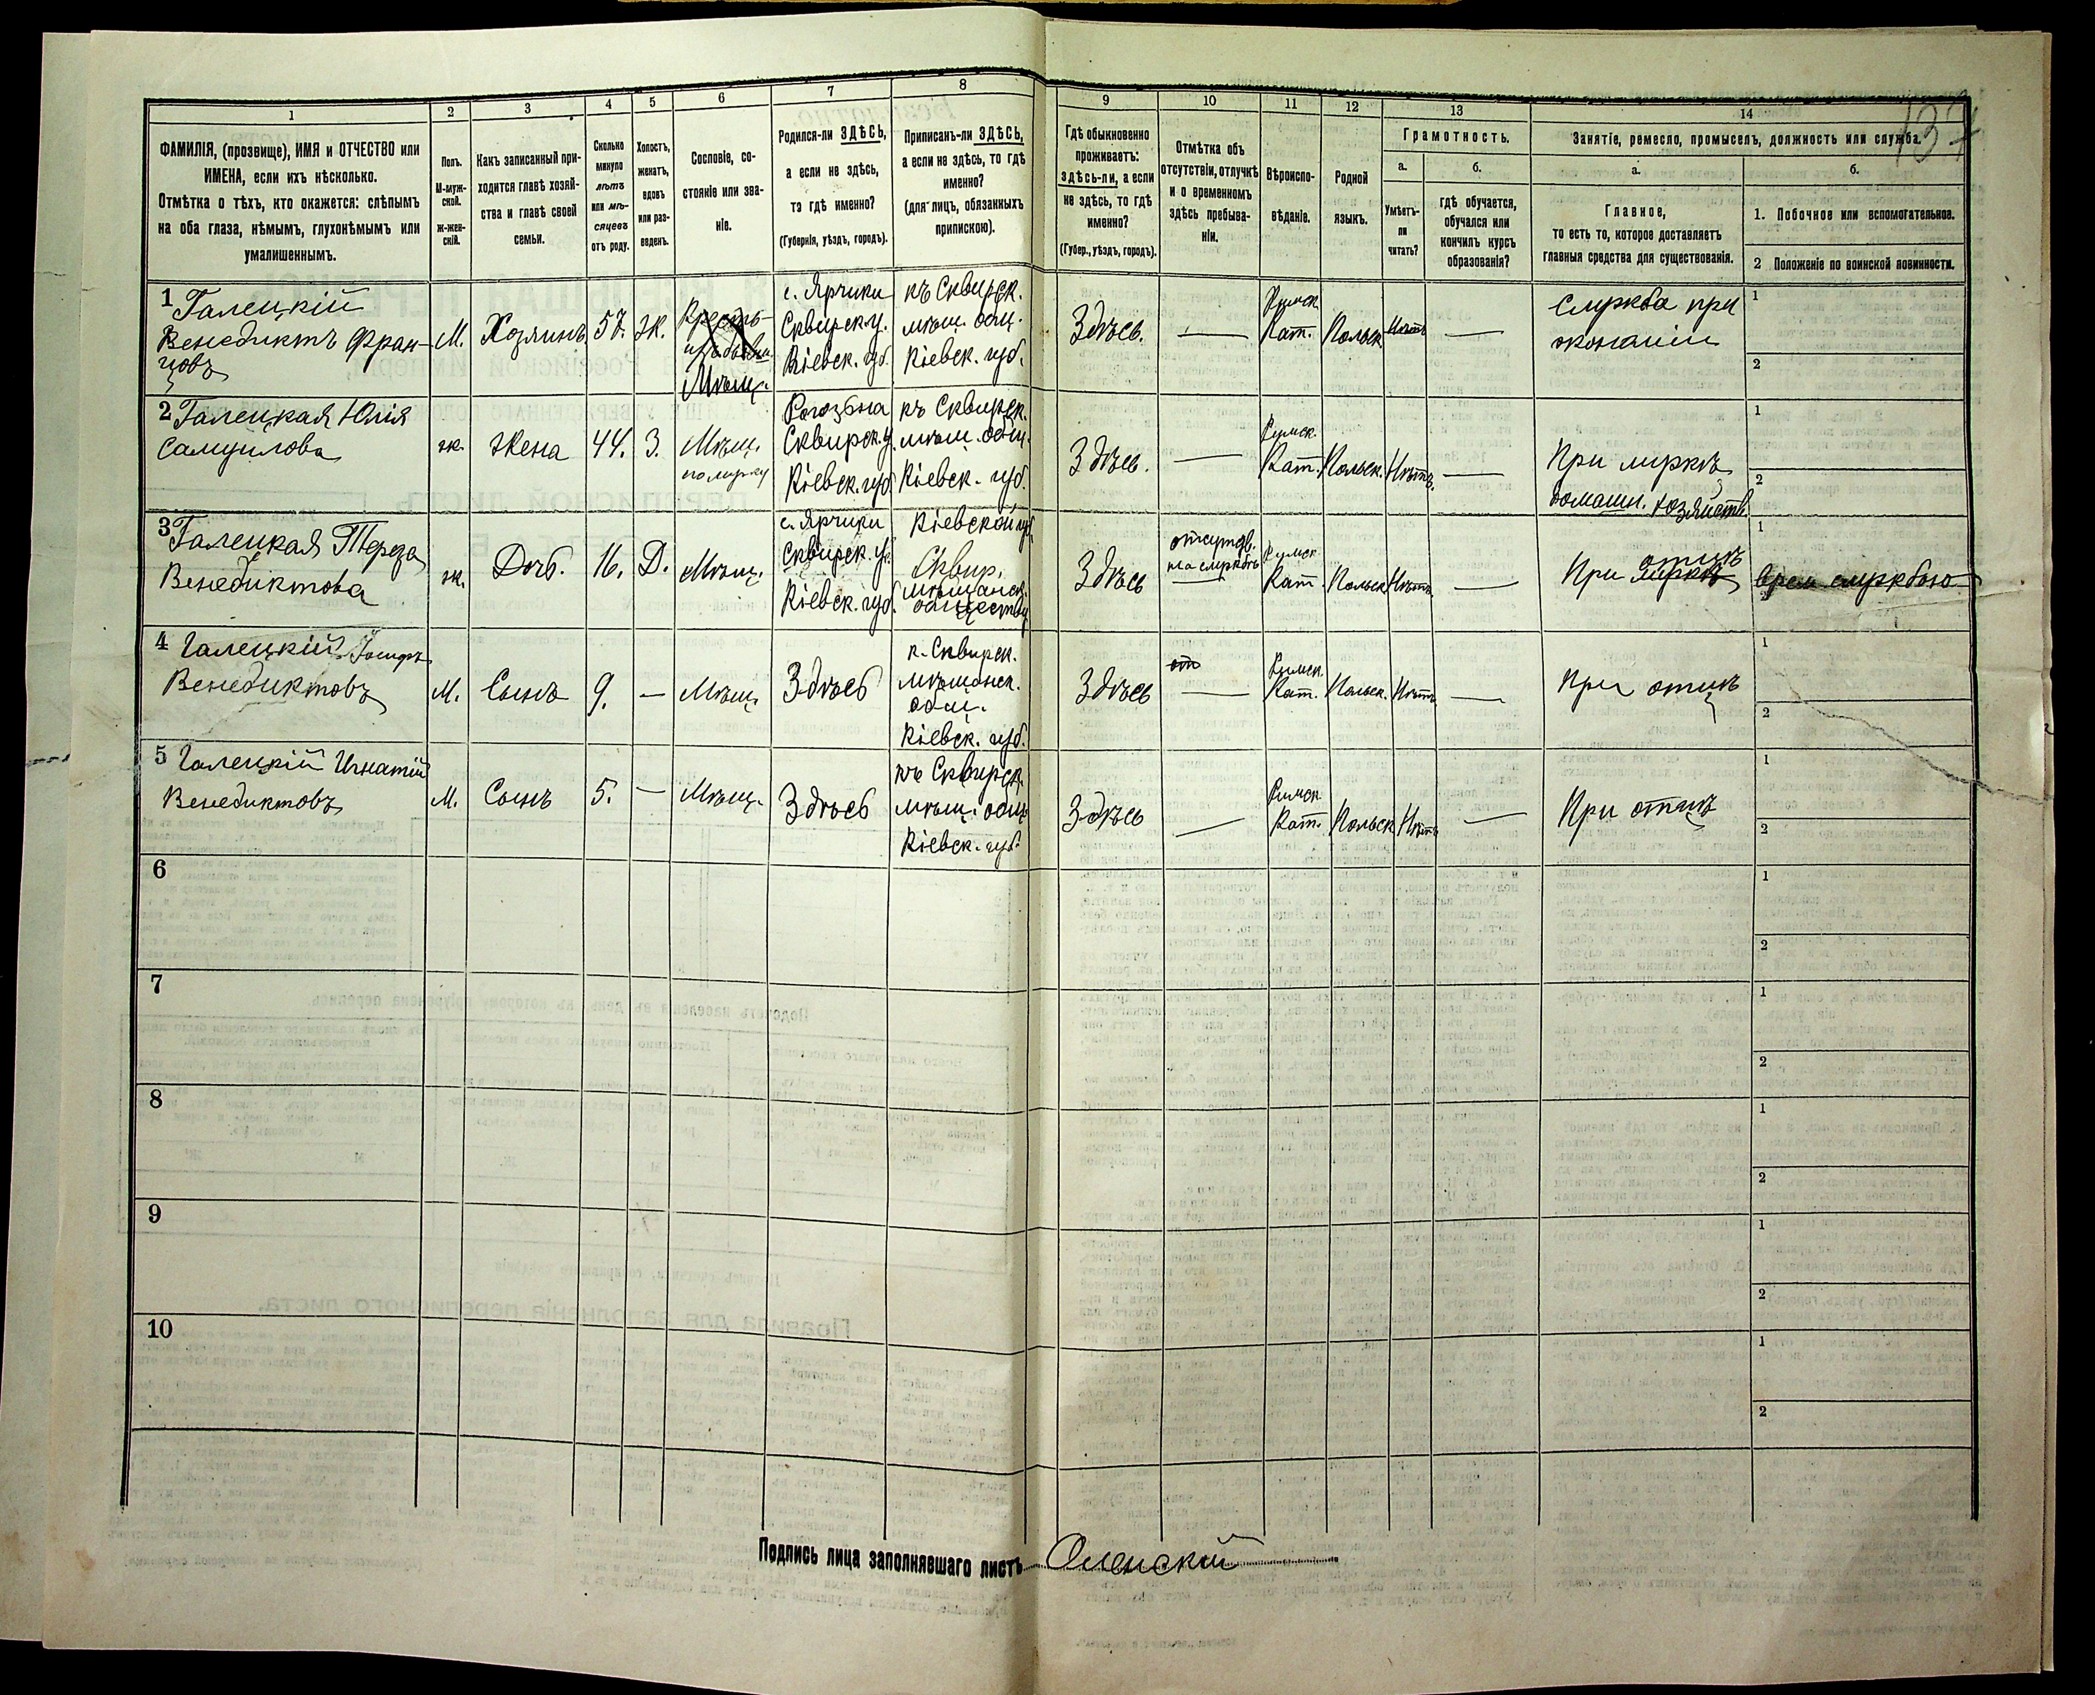 137
1
2
3
4
5
6
7
8
9
10
11
12
13
14
ФАМИЛІЯ, (прозвище), ИМЯ и ОТЧЕСТВО или
ИМЕНА, если ихъ нѣсколько.
Отмѣтка о тѣхъ, кто окажется: слѣпымъ
на оба глаза, нѣмымъ, глухонѣмымъ или
умалишеннымъ.
Полъ.
М-муж-
ской.
ж-жен-
скій.
Какъ записанный при-
ходится главѣ хозяй-
ства и главѣ своей
семьи.
Сколько
минуло
лѣтъ
или мѣ-
сяцевъ
отъ роду.
Холостъ,
женатъ,
вдовъ
или раз-
веденъ.
Сословіе, со-
стояніе или зва-
ніе.
Родился-ли ЗДѢСЬ,
а если не здѣсь,
то гдѣ именно?
(Губернія, уѣздъ, городъ).
Приписанъ-ли ЗДѢСЬ,
а если не здѣсь, то гдѣ
именно?
(для лицъ, обязанныхъ
припискою).
Гдѣ обыкновенно
проживаетъ:
здѣсь-ли, а если
не здѣсь, то гдѣ
именно?
(Губер., уѣздъ, городъ).
Отмѣтка объ
отсутствіи, отлучкѣ
и о временномъ
здѣсь пребыва-
ніи.
Вѣроиспо-
вѣданіе.
Родной
языкъ.
Грамотность.
а.
Умѣетъ-
ли
читать?
б.
гдѣ обучается,
обучался или
кончилъ курсъ
образованія?
Занятіе, ремесло, промыселъ, должность или служба.
а.
Главное,
то есть то, которое доставляетъ
главныя средства для существованія.
б.
1. Побочное или вспомогательное.
2 Положеніе по воинской повинности.
1 Галецкій
Венедиктъ Фран-
цовъ
М.
Хозяинъ
57.
ж.
Мѣщ.
с. Ярчики
Сквирск. у.
Кіевск. губ.
къ Сквирск.
мѣщ. общ.
Кіевск. губ.
Здѣсь.
—
Римск.
Кат.
Польск
Нѣтъ
—
Служба при
экономіи
1
2
2 Галецкая Юлія
Самуилова
ж.
Жена
44.
З.
Мѣщ.
по мужу
Рогозбна
Сквирск. у.
Кіевск. губ.
къ Сквирск.
мѣщ. общ.
Кіевск. губ.
Здѣсь.
—
Римск.
Кат.
Польск.
Нѣтъ.
—
При мужѣ
домашн. хозяйств
1
2
3 Галецкая Тереза
Венедиктова
ж.
Дочь.
16.
Д.
Мѣщ.
с. Ярчики
Сквирск. у.
Кіевск. губ.
Кіевской губ
Сквир.
мѣщанск.
обществу
Здѣсь
отсутств.
на службѣ
Римск
Кат.
Польск
Нѣтъ
—
При мужѣ
отцѣ
1
врем службою
2
4 Галецкій Іосифъ
Венедиктовъ
М.
Сынъ
9.
—
Мѣщ.
Здѣсь
к. Сквирск.
мѣщанск.
общ.
Кіевск. губ.
Здѣсь
от
—
Римск.
Кат.
Польск.
Нѣтъ
—
При отцѣ
1
2
5 Галецкій Игнатій
Венедиктовъ
М.
Сынъ
5.
—
Мѣщ.
Здѣсь
къ Сквирск.
мѣщ. общ.
Кіевск. губ.
Здѣсь
—
Римск
Кат.
Польск
Нѣтъ
—
При отцѣ
1
2
6
1
2
7
1
2
8
1
2
9
1
2
10
1
2
Подпись лица заполнявшаго листъ Оленскій